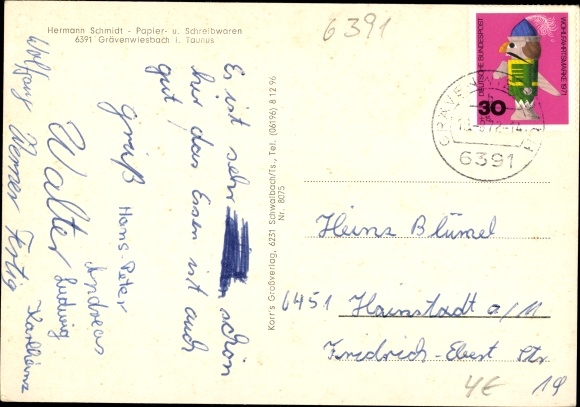 Hermann Schmidt - Papier- u. Schreibwaren
6391 Grävenwiesbach i. Taunus
6391
Es ist sehr schön
hier, das Essen ist auch
gut
gruß Hans-Peter
Andreas
Walter Ludwig
Wolfgang Werner Fertig Karlheinz
Korr's Großverlag, 6231 Schwalbach/Ts., Tel. (06196) 8 12 96
Nr. 8075
DEUTSCHE BUNDESPOST
WOHLFAHRTSMARKE 1971
30
6391
Heinz Blümel
6451 Hainstadt a/M
Fridrich-Ebert Str
19
4€